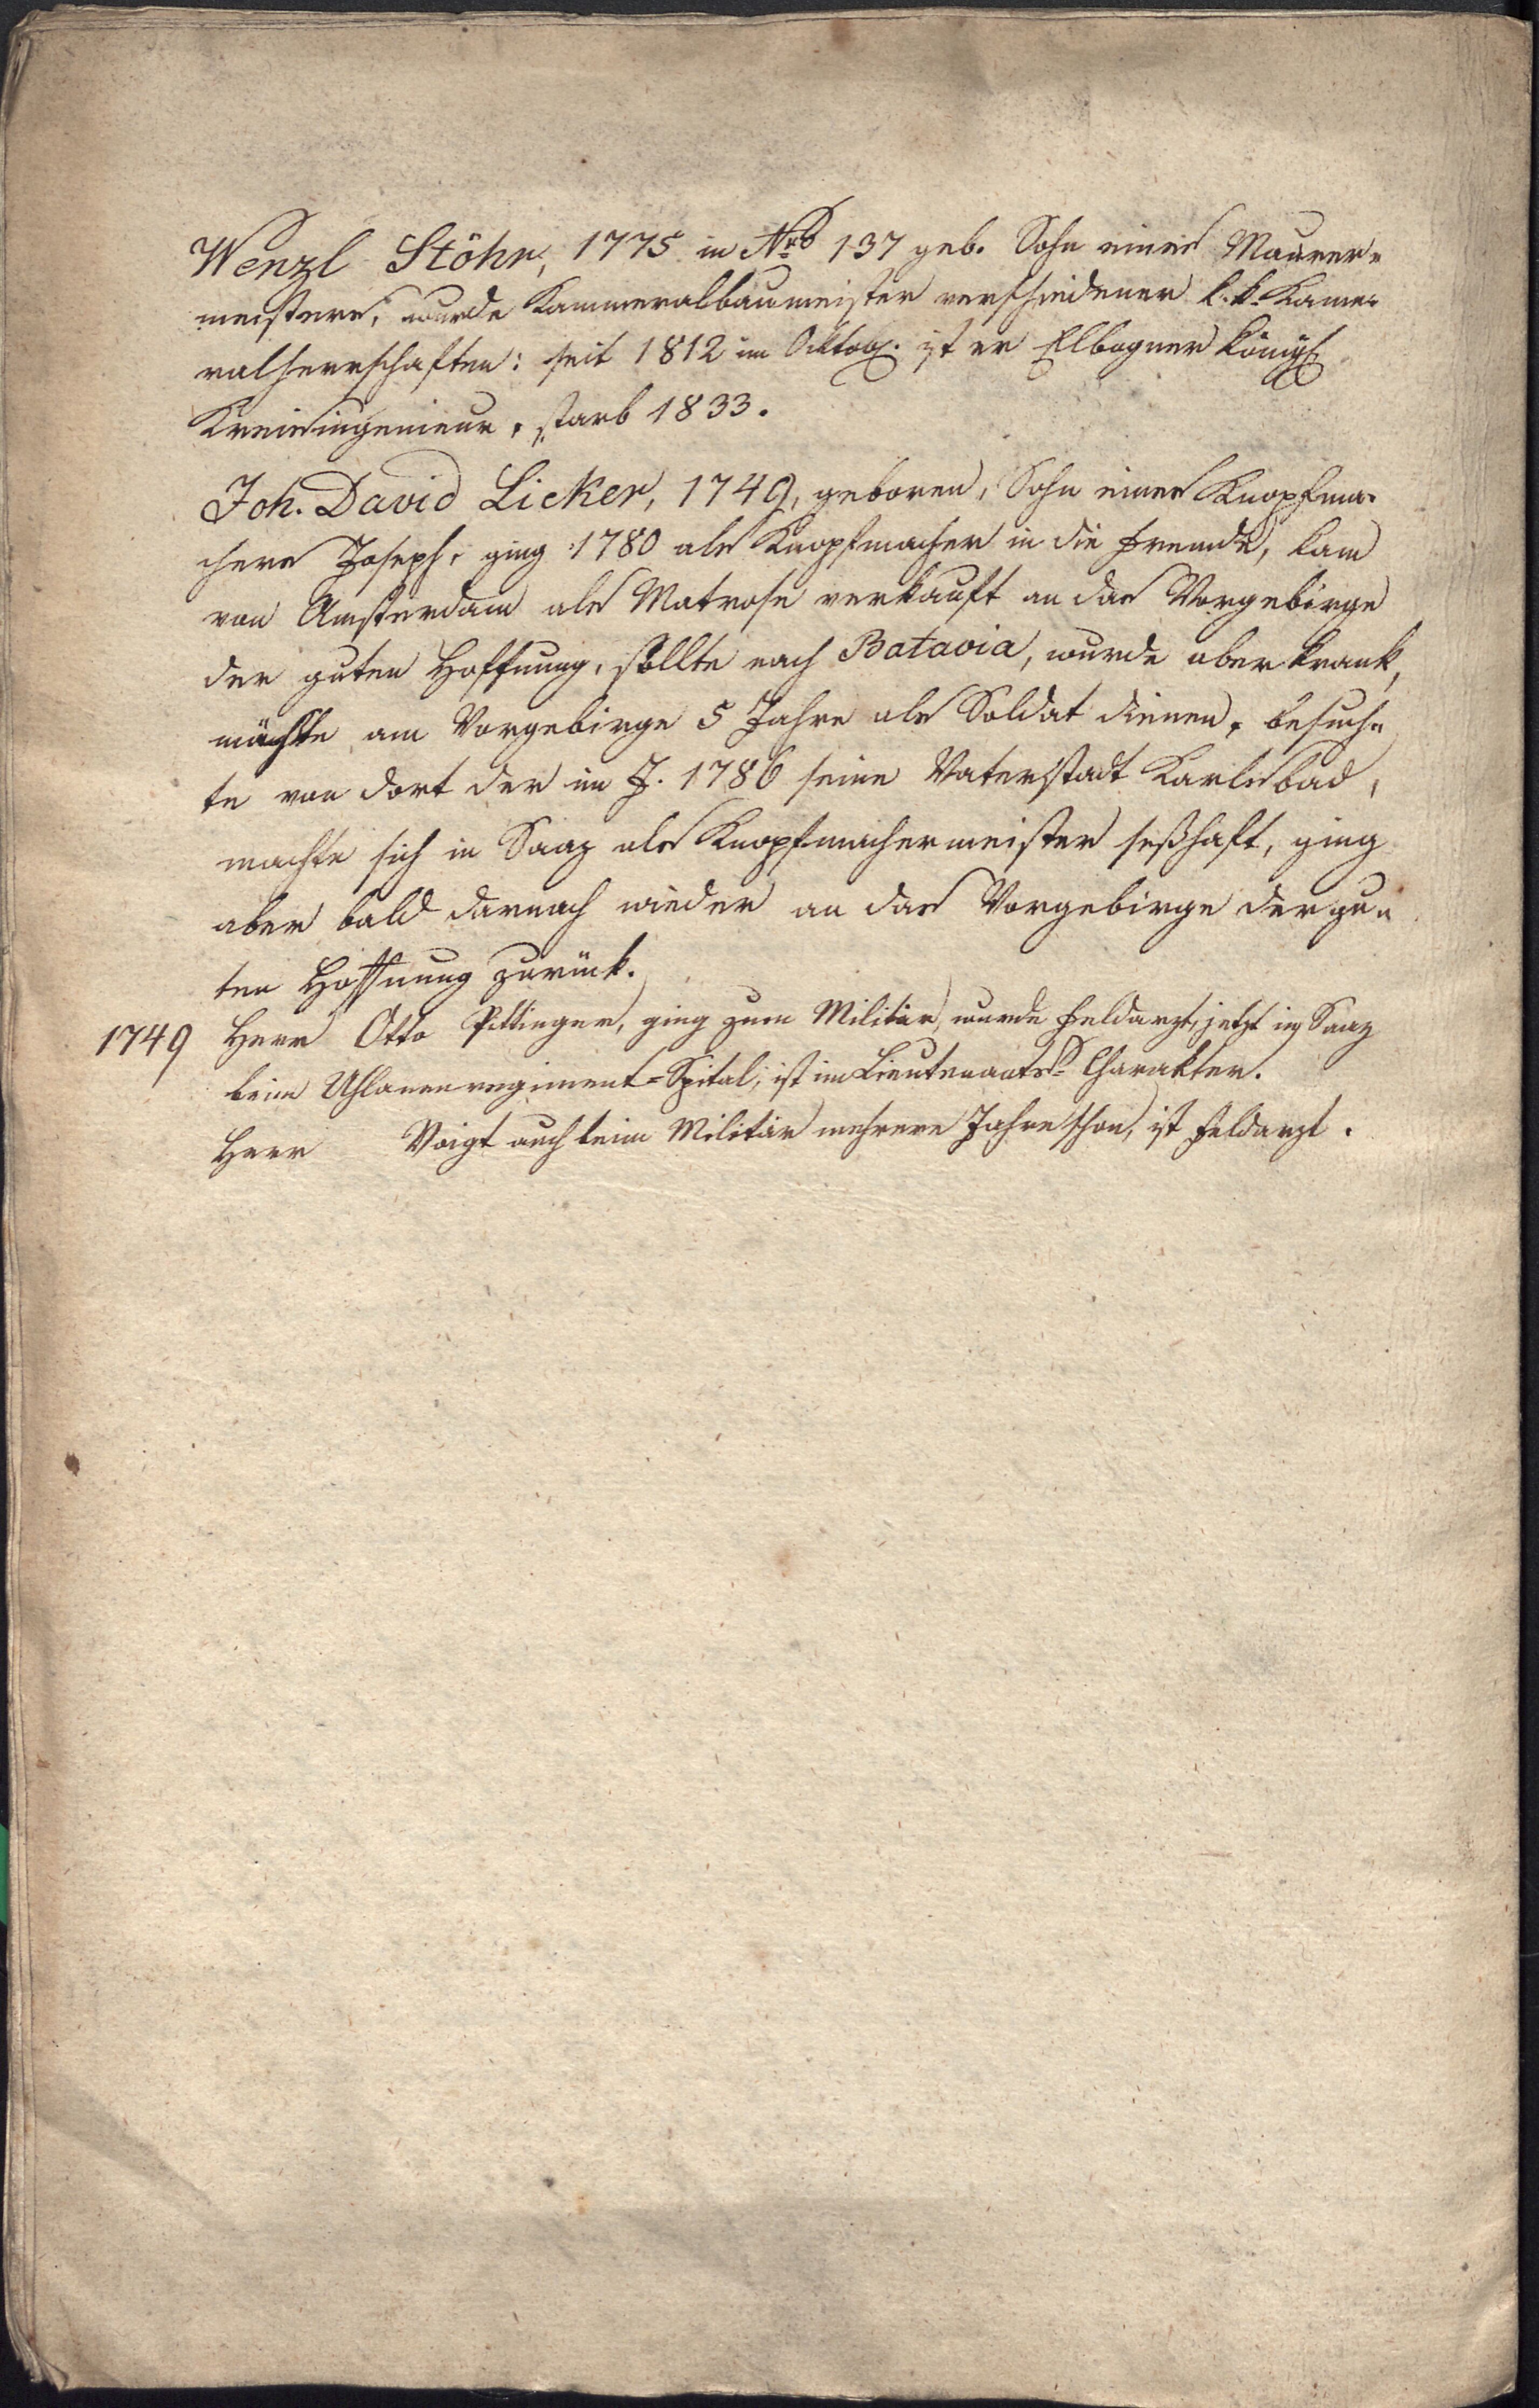 Wenzl Stöhr, 1775 in Nro 137 geb. Sohn eines Maurer-
meisters, wurde Kammeralbaumeister verschiedener k. k. Kame-
ralherrschaften: seit 1812 im Oktob. ist er Elbogner königl
Kreisingenieur, starb 1833.
Joh. David Licker, 1749, geboren, Sohn eines Knopfma-
chers Joseph, ging 1780 als Knopfmacher in die Fremde, kam
von Amsterdam als Matrose verkauft an das Vorgebirge
der guten Hoffnung, sollte nach Batavia, wurde aber krank,
mußte am Vorgebirge 5 Jahre als Soldat dienen, besuch-
te von dort der im J. 1786 seine Vaterstadt Karlsbad,
machte sich in Saaz als Knopfmachermeister seßhaft, ging
aber bald darnach wieder an das Vorgebirge der gu-
ten Hoffnung zurück.
1749 Herr Otto Pittinger, ging zum Militär, wurde Feldarzt, jetzt in Saaz
beim Uhlanenregiment-Spital, ist im Lieutenants-Charakter.
Herr Voigt auch beim Militär mehrere Jahre schon, ist Feldarzt.